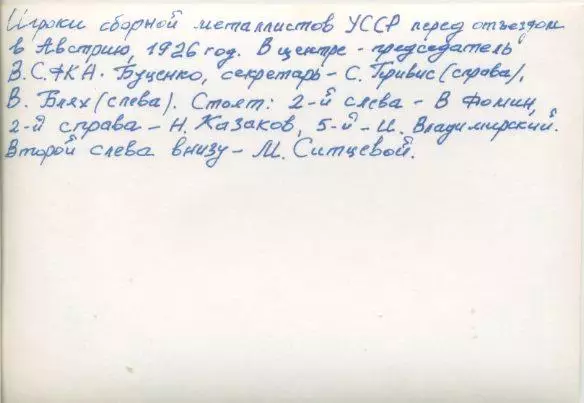 Игроки сборной металлистов УССР перед отъездом
в Австрию, 1926 год. В центре - председатель
В.С.ФКА. Буценко, секретарь - С. Привис (справа),
В. Блях (слева). Стоят: 2-й слева - В Фомин,
2-й справа - Н. Казаков, 5-й - И. Владимирский.
Второй слева внизу - М. Ситцевой.